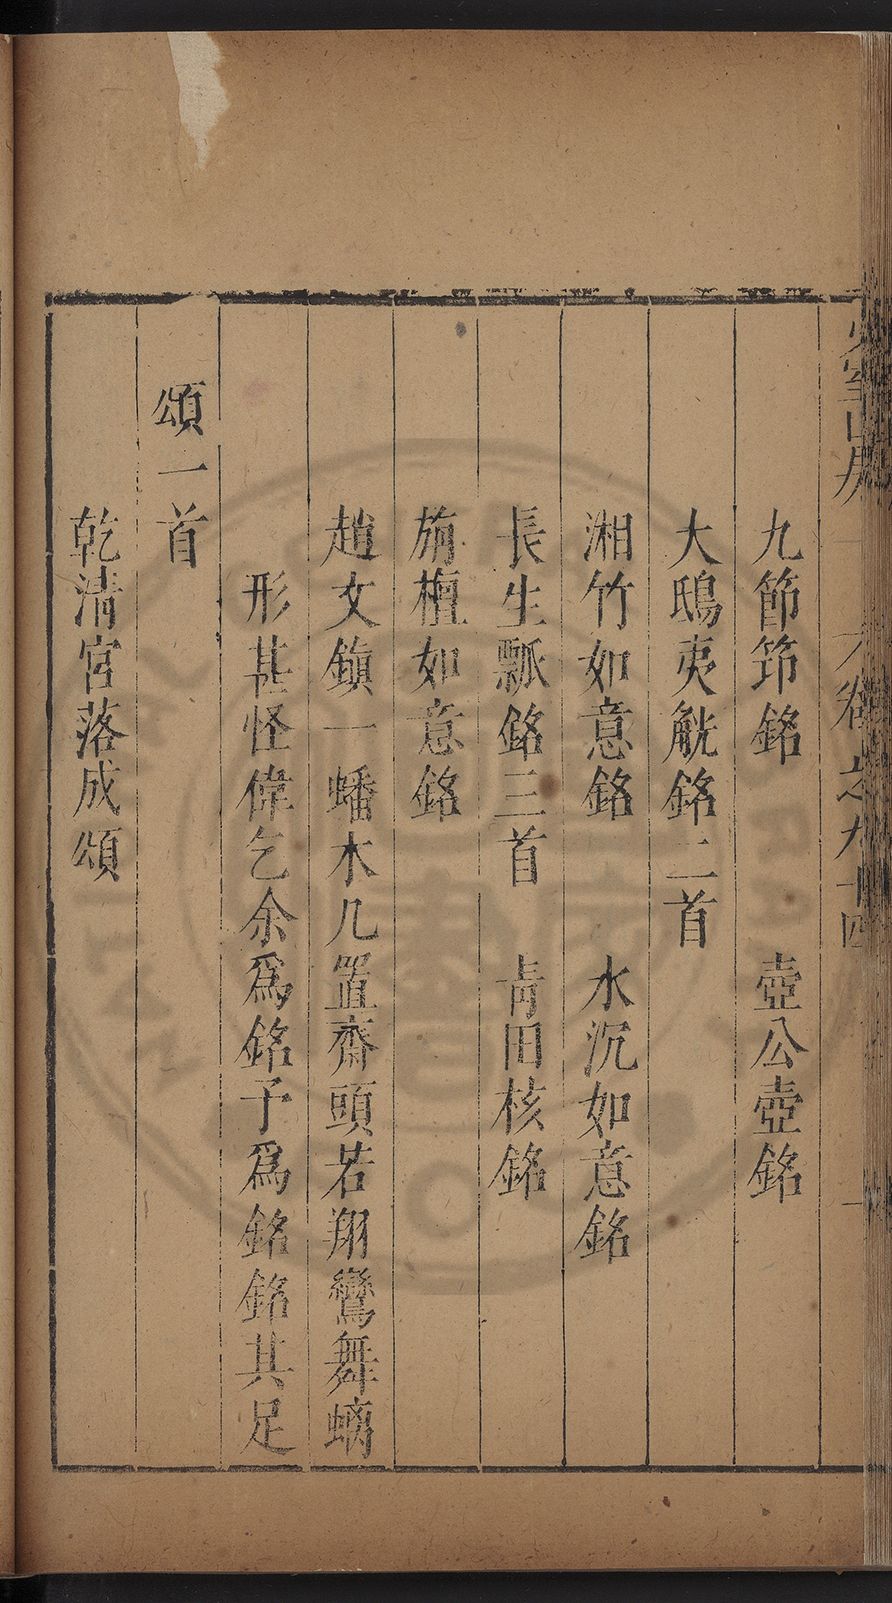 少室山房 卷之九十四 一
九節筇銘 壺公壺銘
大鴟夷觥銘二首
湘竹如意銘 水沉如意銘
長生瓢銘三首 靑田核銘
旃檀如意銘
趙文鎭一蟠木几置齋頭若翔鸞舞螭
形甚怪偉乞余爲銘予爲銘銘其足
頌一首
乾淸宮落成頌